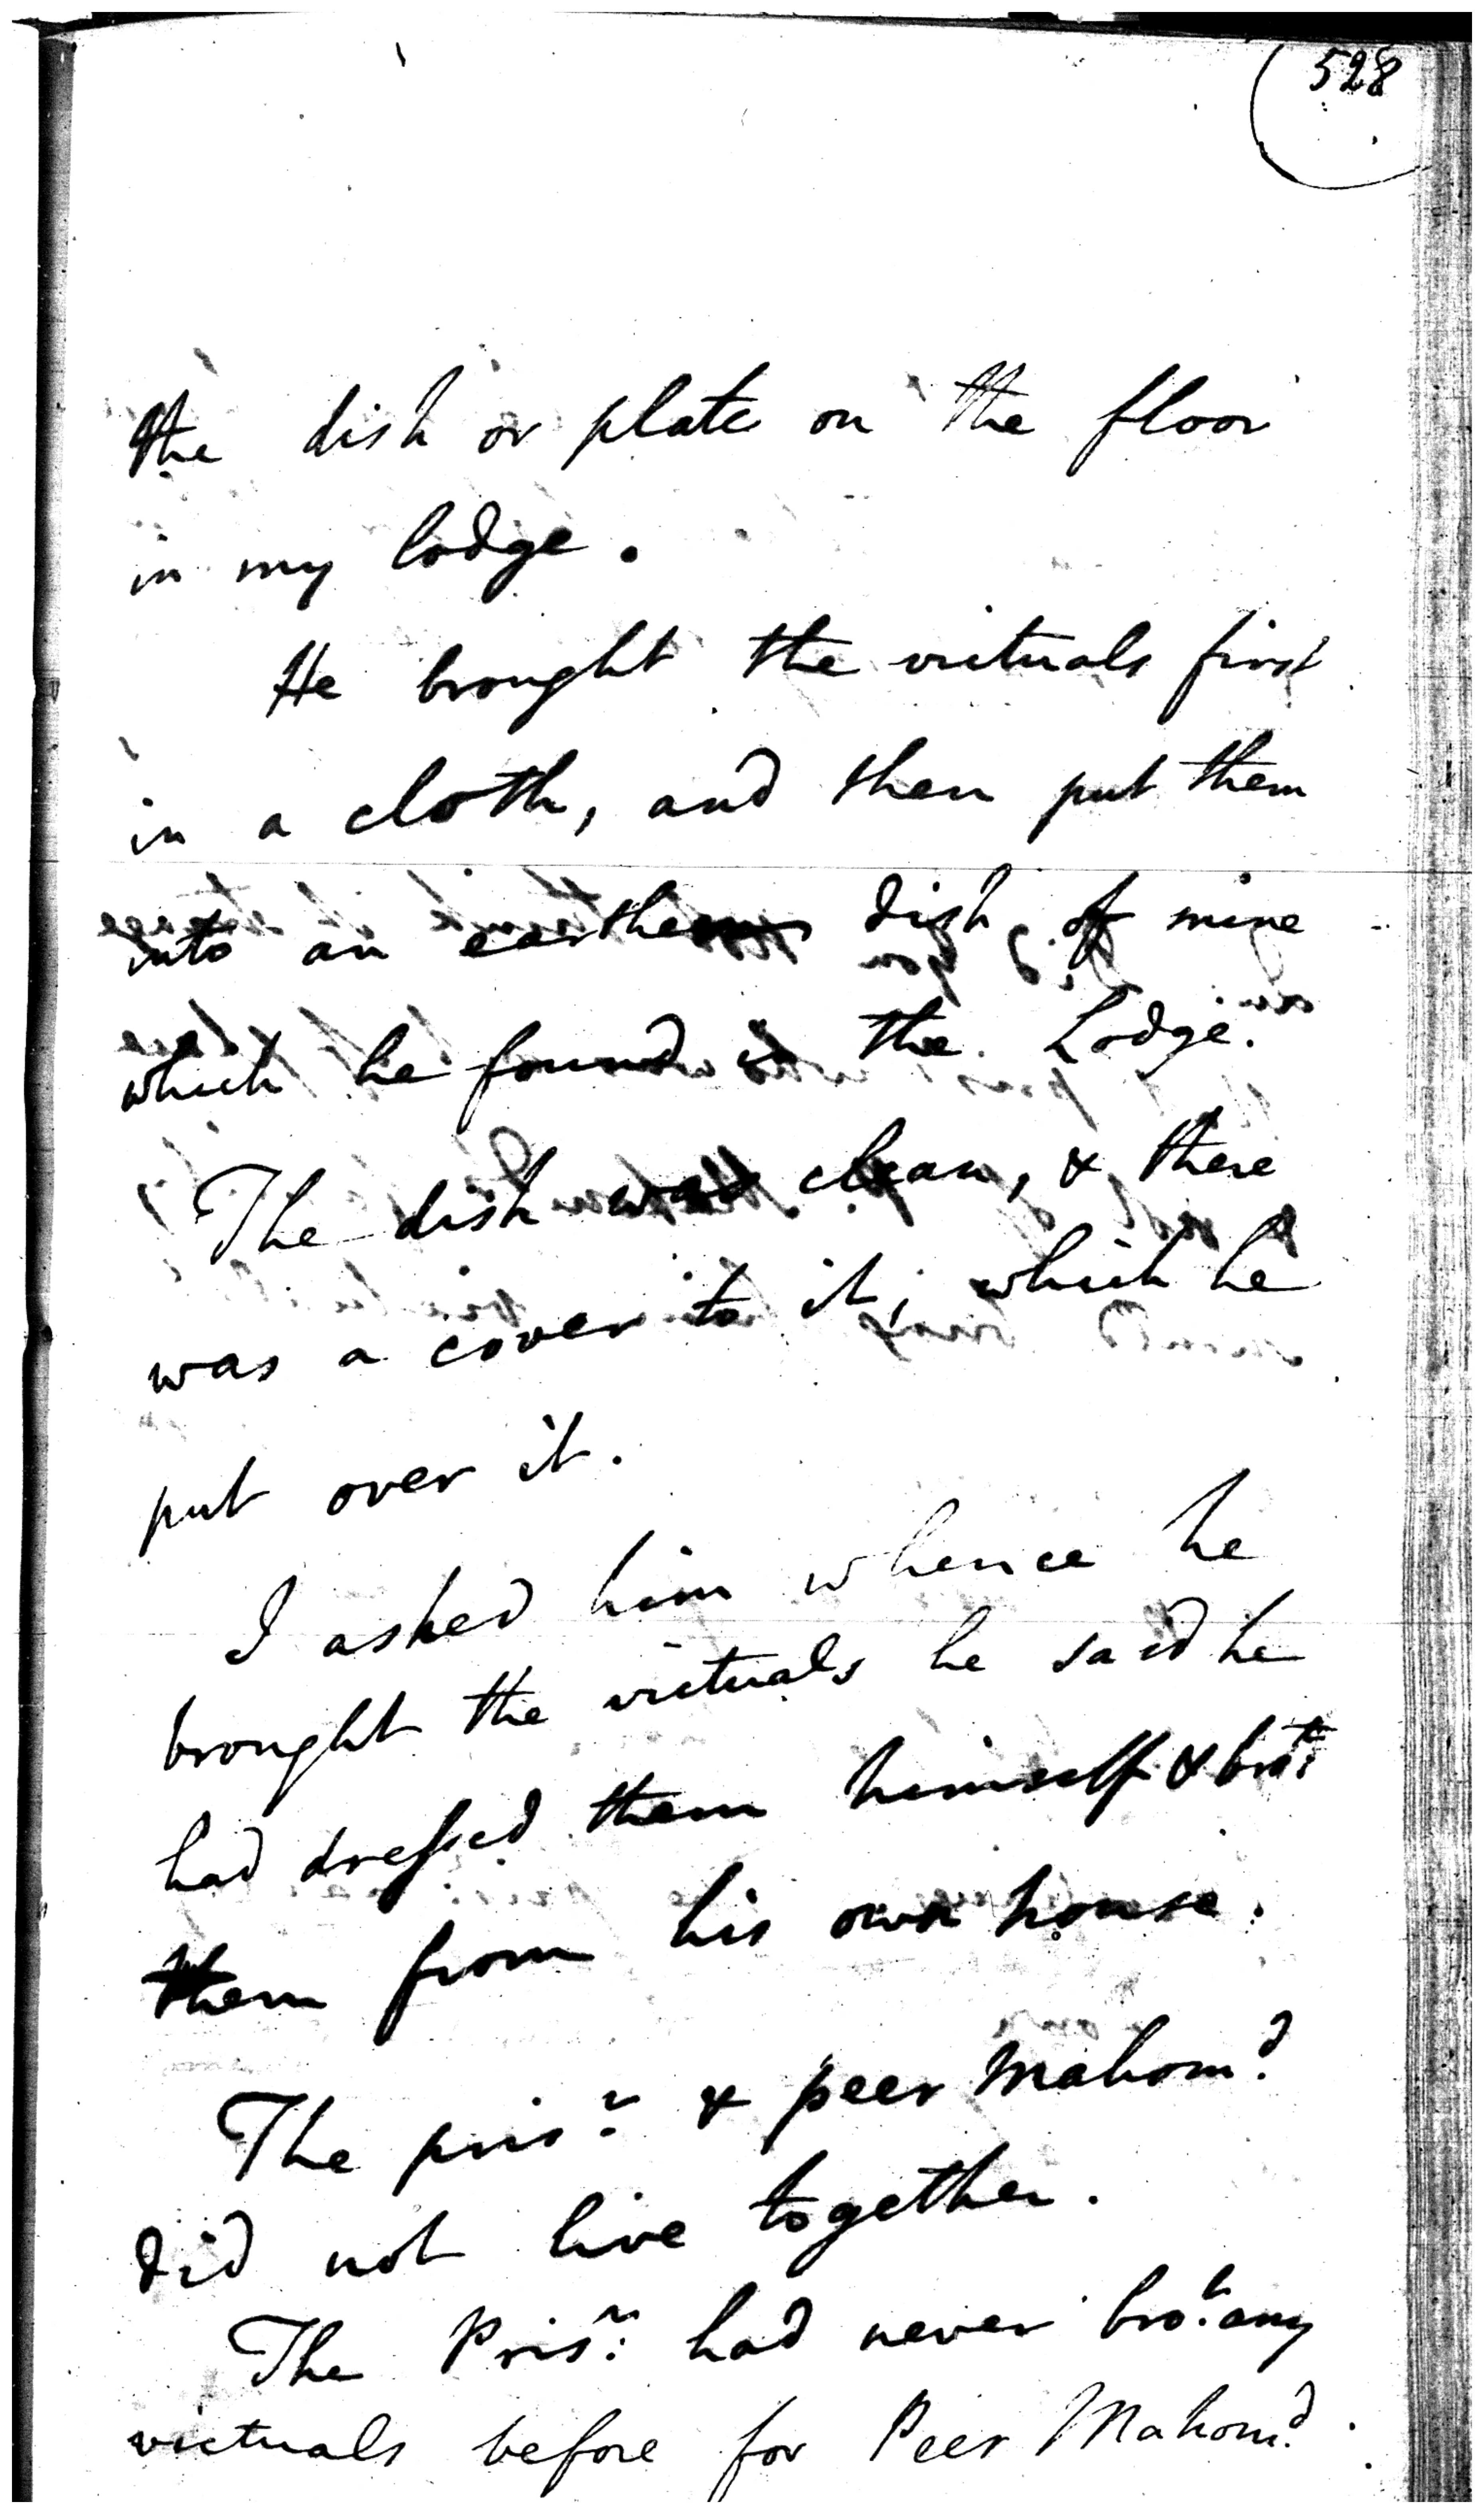 528
the dish or plate on the floor
in my lodge.
He brought the victuals first
in a cloth, and then put them
into an earthen dish of mine
which he found in the Lodge.
The dish was clean, & there
was a cover to it, which he
put over it.
I asked him whence he
brought the victuals he said he
had dressed them himself & brot.
them from his own house.
The prisr. & peer Mahomd.
did not live together.
The Prisr. had never brot. any
victuals before for Peer Mahomd.